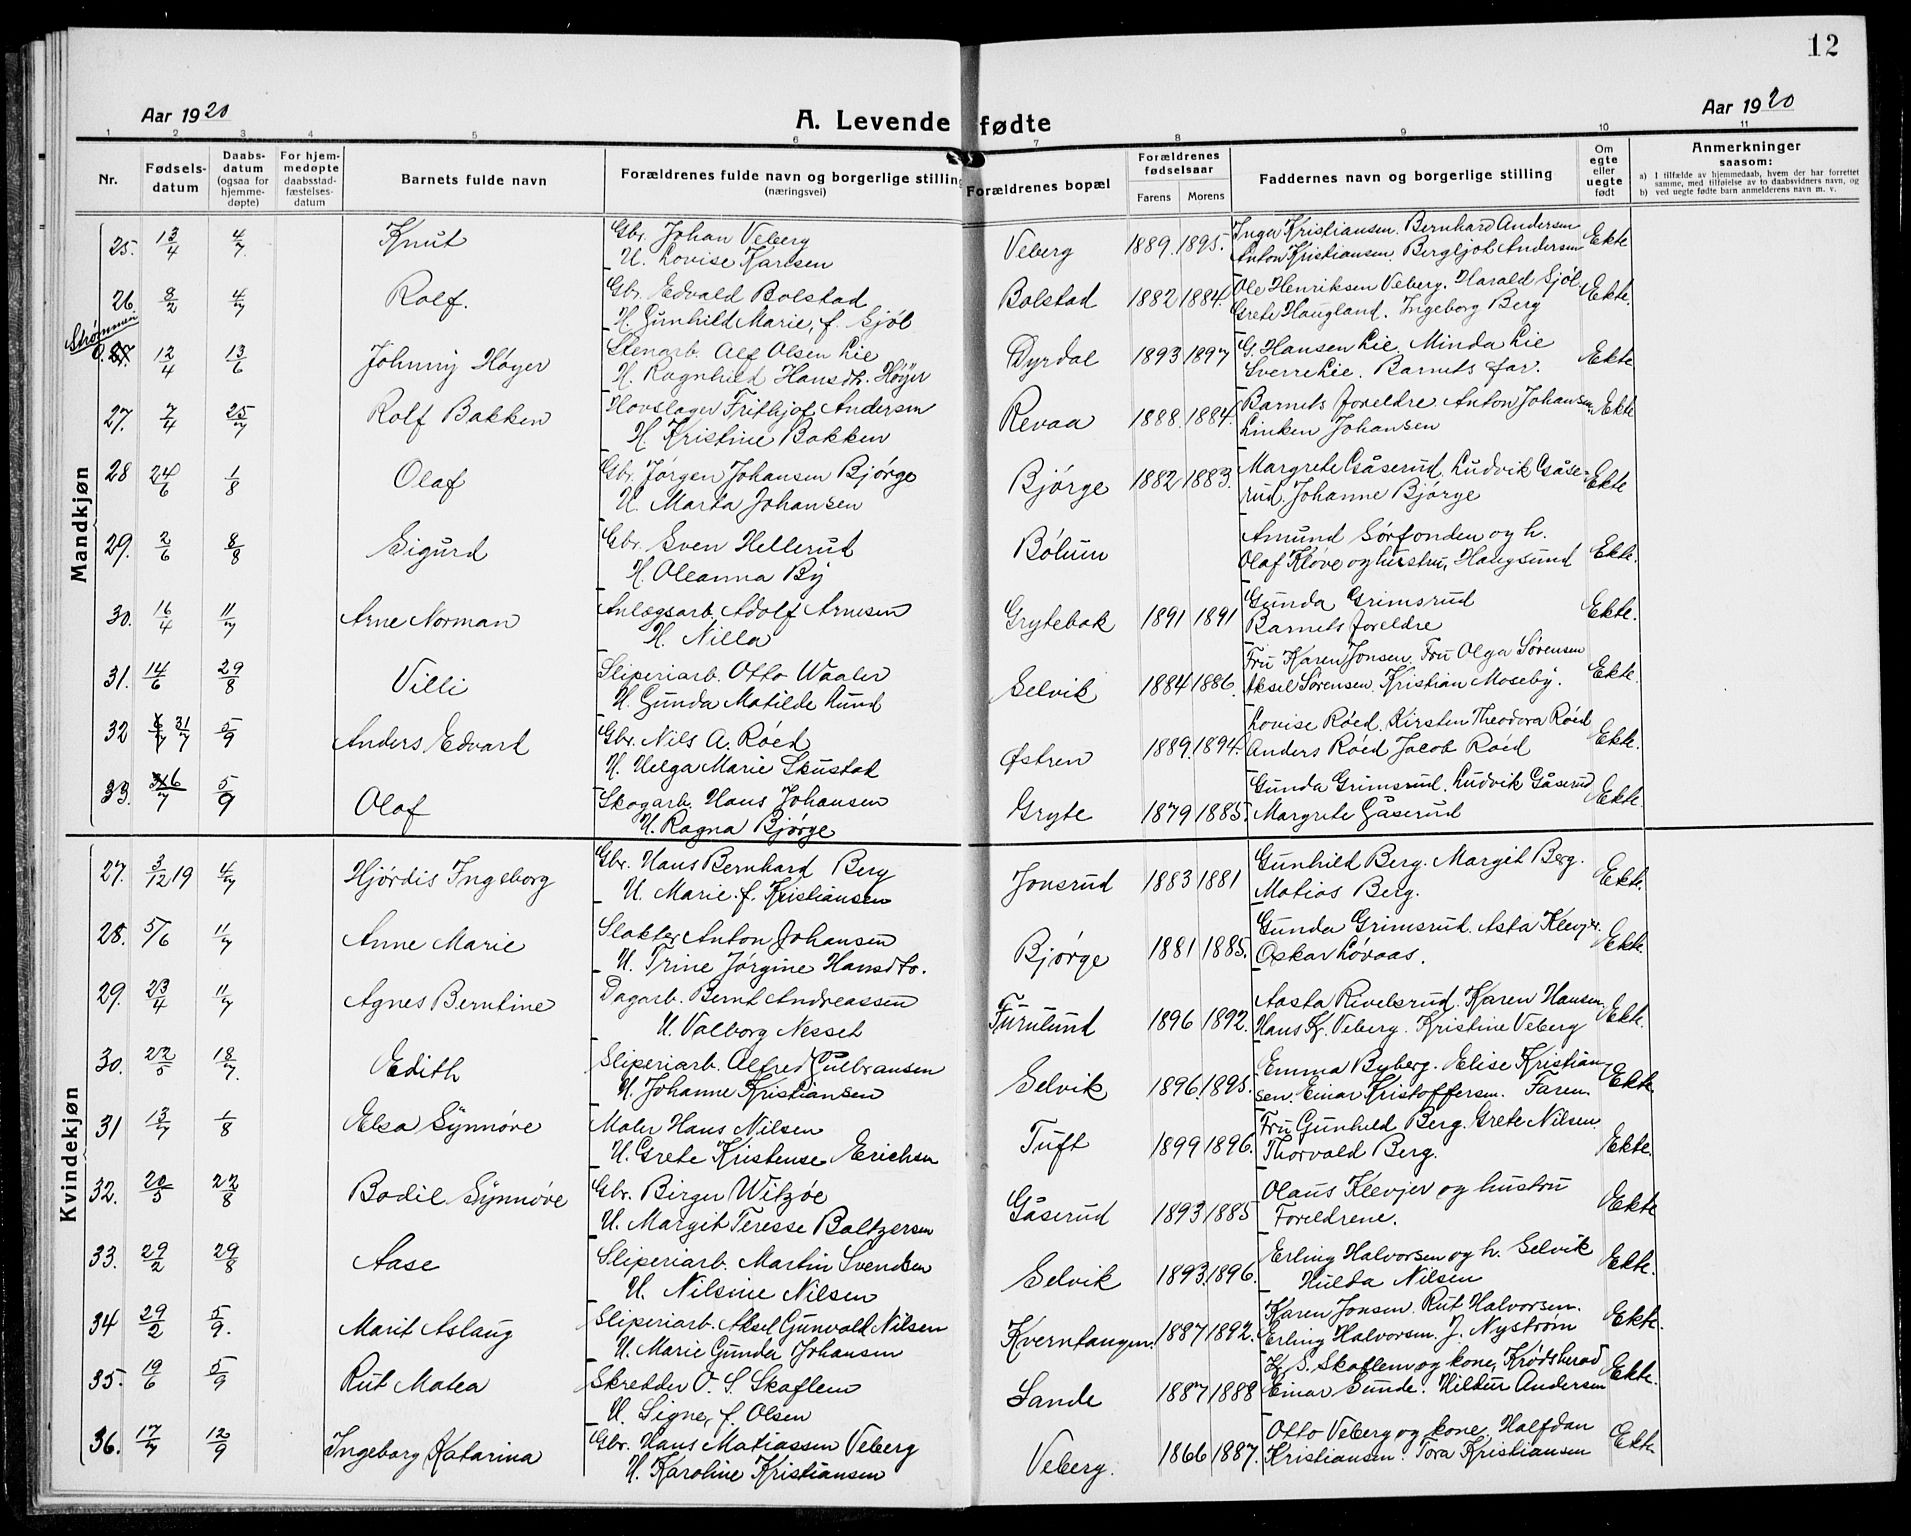 12
Aar 1920
A. Levende fødte
Aar 1920
1 2 3 4 5 6 7 8 9 10 11
Nr. Fødsels- datum Daabs- datum (ogsaa for hjemme- døpte) For hjem- medøpte daabsstad- fæstelses- datum Barnets fulde navn Forældrenes fulde navn og borgerlige stilling (næringsvei) Forældrenes bopæl Forældrenes fødselsaar Farens Morens Faddernes navn og borgerlige stilling Om egte eller uegte født Anmerkninger saasom:
a) I tilfælde av hjemmedaab, hvem der har forrettet
samme, med tilføielse av to daabsvidners navn, og
b) ved uegte fødte barn anmelderens navn m. v.
Mandkjøn
25. 13/4 4/7. Knut Gbr. Johan Veberg Veberg 1889. 1895. Inga Kristiansen. Bernhard Andersen Ekte
H. Lovise Karlsen Anton Kristiansen. Bergljot Andersen
26. 8/2 4/7 Rolf. Gbr. Edvald Bolstad Bolstad 1882 1884. Ole Henriksen Veberg. Harald Sjøl Ekte.
H. Gunhild Marie, f. Sjøl Grete Haugland. Ingeborg Berg
Strømmen
0.27 12/4 13/6 Johnny Høyer Stenarb. Alf Olsen Lie Dyrdal 1893 1897 G. Hansen Lie. Minda Lie Ekte
H. Ragnhild Hansdt. Høyer Sverre Lie. Barnets far.
27. 7/4 25/7 Rolf Bakken Hovslager Frithjof Andersen Revaa 1888. 1884. Barnets foreldre. Anton Johansen Ekte
H. Kristine Bakken Linken Johansen
28 24/6 1/8 Olaf Gbr. Jørgen Johansen Bjørge Bjørge 1882 1883. Margrete Gåserud. Ludvik Gåse- Ekte
H. Marta Johansen rud. Johanne Bjørge
29. 2/6 8/8 Sigurd Gbr. Sven Hellerud Bølum Amund Sørfonden og h. Ekte.
H. Oleanna By Olaf Kløve og hustru, Haugsund
30. 16/4 11/7 Arne Norman Anlegsarb. Adolf Arnesen Grytebak 1891 1891 Gunda Grimsrud Ekte.
H. Nilla Barnets foreldre
31. 14/6 29/8 Villi Sliperiarb. Otto Waaler Selvik 1884 1886. Fru Karen Jonsen. Fru Olga Sørensen Ekte.
H. Gunda Matilde Lund Aksel Sørensen. Kristian Moseby.
32 31/7 5/9 Anders Edvart Gbr. Nils A. Røed Østren 1889. 1894. Lovise Røed. Kirsten Theodora Røed Ekte.
H. Helga Marie Skustad Anders Røed Jacob Røed
33. 6/7 5/9 Olaf Skogarb. Hans Johansen Gryte 1879 1885. Gunda Grimsrud. Ludvik Gåserud Ekte.
H. Ragna Bjørge Margrete Gåserud
Kvindekjøn
27. 3/12 19 4/7 Hjørdis Ingeborg Gbr. Hans Bernhard Berg Jonsrud 1883 1881 Gunhild Berg. Margit Berg. Ekte.
H. Marie. f. Kristiansen Matias Berg.
28. 5/6 11/7 Anne Marie Slakter Anton Johansen Bjørge 1881 1885. Gunda Grimsrud. Asta Klevjer. Ekte.
H. Trine Jørgine Hansdtr. Oskar Løvaas.
29. 23/4 11/7 Agnes Berntine Dagarb. Bernt Andreassen Furulund 1896 1892. Aasta Rivelsrud. Karen Hansen. Ekte.
H. Valborg Nesset Hans Kr. Veberg. Kristine Veberg
30. 22/5 18/7. Edith Sliperiarb. Alfred Gulbransen Selvik 1896. 1895. Emma Byberg. Elise Kristian- Ekte
H. Johanne Kristiansen sen. Einar Kristoffersen. Faren.
31 13/7 1/8 Elsa Synnøve Maler Hans Nilsen Tuft 1899 1896. Fru Gunhild Berg. Grete Nilsen. Ekte.
H. Grete Kristense Erichsen Thorvald Berg.
32. 20/5 22/8 Bodil Synnøve Gbr. Birger Witzøe Gåserud 1893 1885 Olaus Klevjer og hustru Ekte
H. Margit Teresse Baltzersen Foreldrene.
33. 29/2 29/8 Aase Sliperiarb. Martin Svendsen Selvik 1893. 1896. Erling Halvorsen og h. Selvik Ekte.
H. Nilsine Nilsen Hulda Nilsen
34 29/2 5/9. Marit Aslaug Sliperiarb. Aksel Gunvald Nilsen Kverntangen. 1887 1892. Karen Jonsen. Rut Halvorsen. Ekte.
H. Marie Gunda Johansen Erling Halvorsen. J. Nystrøm
35. 19/6 5/9 Rut Matea Skredder O. S. Skaflem Sande 1887 1888 Kr. S. Skaflem og kone, Krødsherad Ekte.
H. Signe, f. Olsen Einar Sunde. Hildur Andersen
36. 17/7 12/9 Ingeborg Katarina Gbr. Hans Matiassen Veberg Veberg. 1866 1887. Otto Veberg og kone. Halfdan Ekte
H. Karoline Kristiansen Kristiansen. Tora Kristiansen